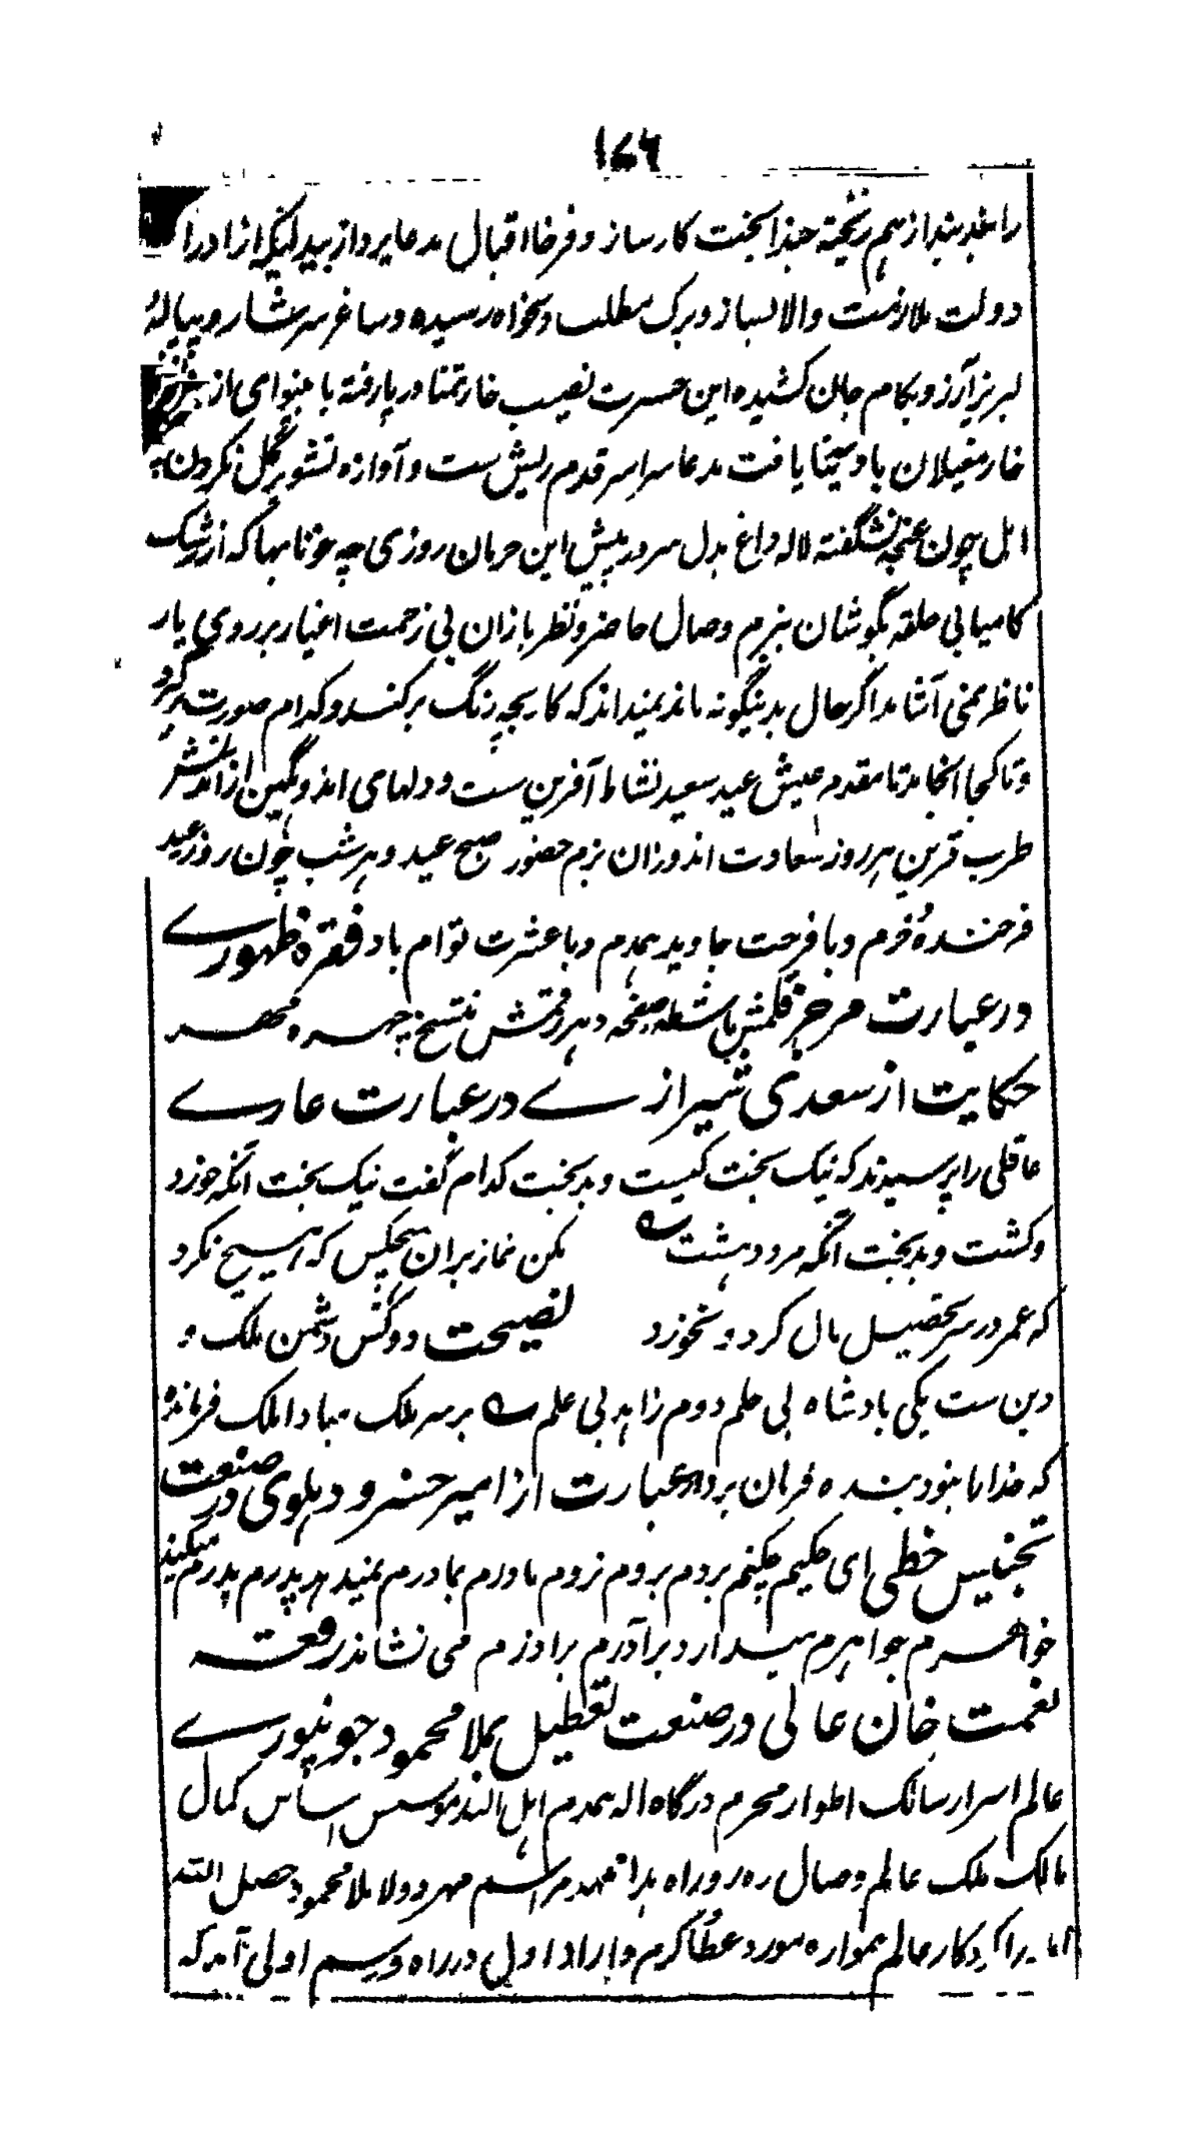 ۱۷۶
را بند بند از هم ریخته حبذا بخت کارساز و فرخا اقبال مدعا پرداز بیدلیکه از ادراک
دولت ملازمت والا بساز و برگ مطلب دلخواه رسیده و ساغر سرشار و پیالهٔ
لبریز آرزو بکام جان کشیده این حسرت نصیب خار تمنا در پا رفته با بینوای از
خار مغیلان بادیه تمنا یافت مدعا سراسر قدم ریش ست و آوازه تشویر گل نکردن
امل چون غنچه نشگفته لاله داغ بدل سرو در پیش این حرمان روزی چه خونابها که از رشک
کامیابی حلقه بگوشان بزم وصال حاضر و نظر بازان بی زحمت اغیار بر روی یار
ناظر نمی آشامد اگر حال بدینگونه ماند نمیداند که کار بچه رنگ بر کند و کدام صورت گیرد
و تا کجا انجامد تا مقدم عیش عید سعید نشاط آفرین ست و دلهای اندوهگین از آمدنش
طرب قرین هر روز سعادت اندوزان بزم حضور صبح عید و هر شب چون روز عید
فرخنده و خرم و با فرحت جاوید همدم و با عشرت توام باد فقره ظهوری
در عبارت مرجز قلمش ماشطه صفحه و هر رقمش منتسخ چهره مهر
حکایت از سعدی شیرازی در عبارت عاری
عاقلی را پرسیدند که نیک بخت کیست و بدبخت کدام گفت نیک بخت آنکه خورد
و کشت و بدبخت آنکه مرد و هشت ؎ مکن نماز بران هیچکس که هیچ نکرد
که عمر در سر تحصیل مال کرد و نخورد نصیحت دو کس دشمن ملک و
دین ست یکی بادشاه بی حلم دوم زاهد بی علم ؎ بر سر ملک مباد املک فرمانده
که خدا را نبود بنده فرمان بردار عبارت از امیر خسرو دهلوی در صنعت
تجنیس خطی ای حکیم چکنم بردم بروم نزوم مادرم بمادرم نمیدهد پدرم پدرم میکند
خواهرم جواهرم میدارد برآدرم برادرم می نشاند رقعه
نعمت خان عالی در صنعت تعطیل بملا محمود جونپوری
عالم اسرار سالک اطوار محرم درگاه اله همدم اهل الله موسس اساس کمال
مالک ملک عالم وصال رهرو راه هدا ممهد مراسم مهر و ولا ملا محمود حصل الله
کردکار عالم همواره مورد عطا و کرم و ایراد اول در راه و رسم اولی آمد که